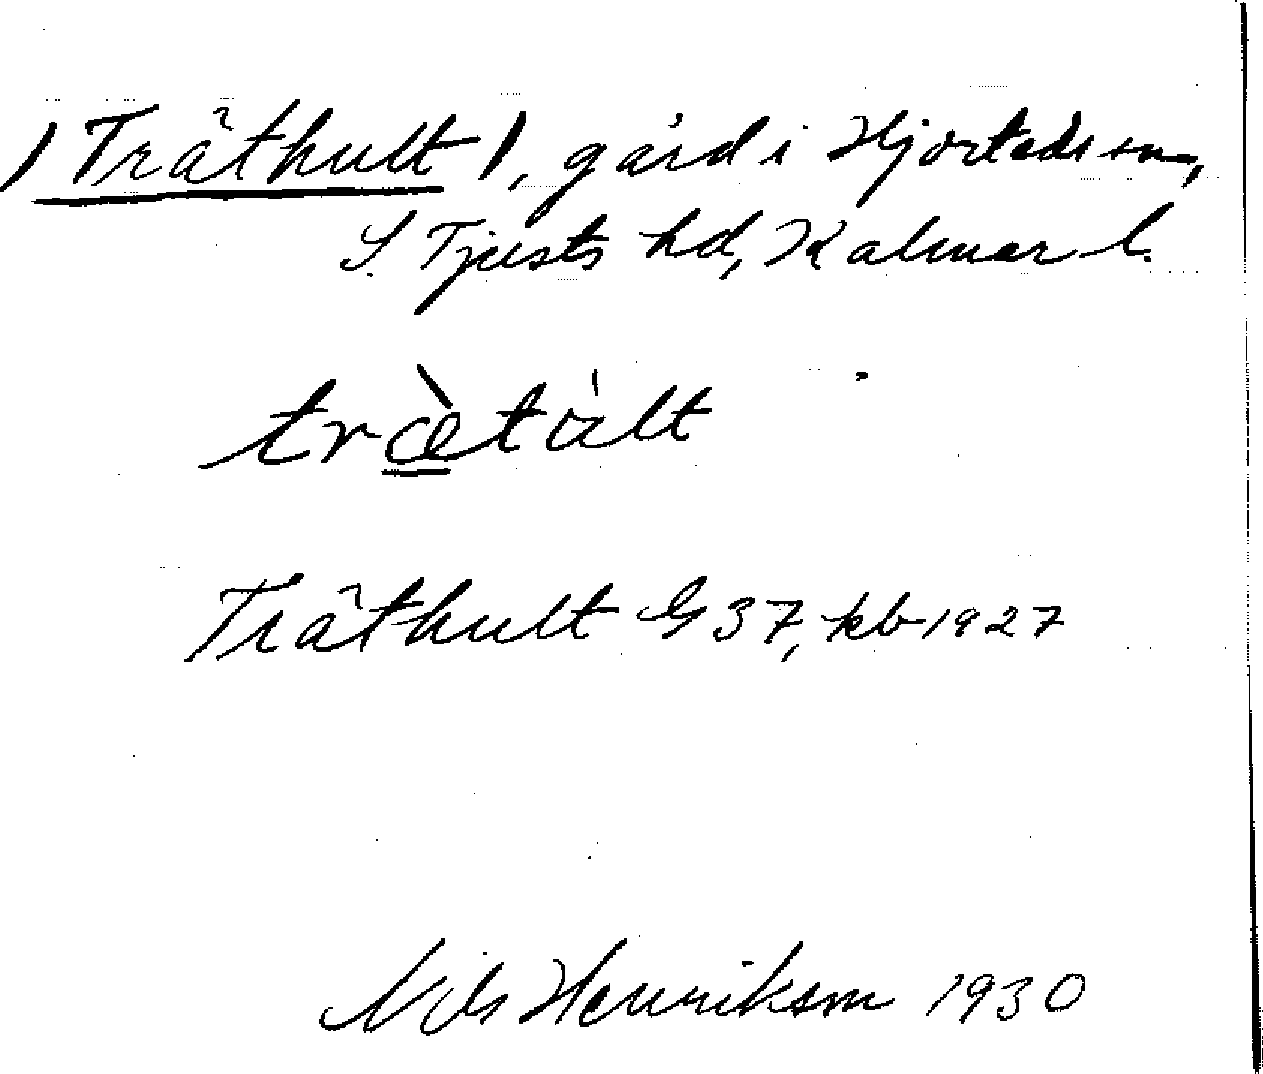 /Träthult/, gård i Hjorteds sn,
S. Tjusts hd, Kalmar l.
træ̀tàlt
Träthult G 37, kb 1927
Nils Henrikson 1930